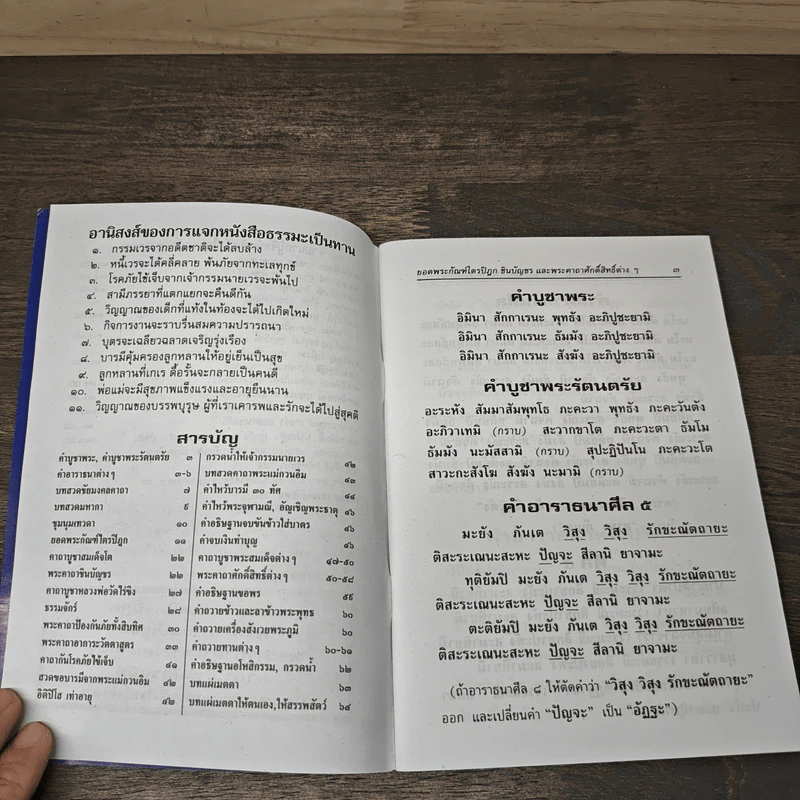 อานิสงส์ของการแจกหนังสือธรรมะเป็นทาน
๑. กรรมเวรจากอดีตชาติจะได้ลบล้าง
๒. หนี้เวรจะได้คลี่คลาย พ้นภัยจากทะเลทุกข์
๓. โรคภัยไข้เจ็บจากเจ้ากรรมนายเวรจะพ้นไป
๔. สามีภรรยาที่แตกแยกจะคืนดีกัน
๕. วิญญาณของเด็กที่แท้งในท้องจะได้ไปเกิดใหม่
๖. กิจการงานจะราบรื่นสมความปรารถนา
๗. บุตรจะเฉลียวฉลาดเจริญรุ่งเรือง
๘. บารมีคุ้มครองลูกหลานให้อยู่เย็นเป็นสุข
๙. ลูกหลานที่เกเร ดื้อรั้นจะกลายเป็นคนดี
๑๐. พ่อแม่จะมีสุขภาพแข็งแรงและอายุยืนนาน
๑๑. วิญญาณของบรรพบุรุษ ผู้ที่เราเคารพและรักจะได้ไปสู่สุคติ
สารบัญ
คำบูชาพระ, คำบูชาพระรัตนตรัย ๓
คำอาราธนาต่าง ๆ ๓-๖
บทสวดชัยมงคลคาถา ๗
บทสวดมหากา ๙
ชุมนุมเทวดา ๑๐
ยอดพระกัณฑ์ไตรปิฎก ๑๑
คาถาบูชาสมเด็จโต ๒๒
พระคาถาชินบัญชร ๒๒
คาถาบูชาหลวงพ่อวัดไร่ขิง ๒๗
ธรรมจักร์ ๒๘
พระคาถาป้องกันภัยทั้งสิบทิศ ๓๐
พระคาถาอาการะวัตตาสูตร ๓๓
คาถากันโรคภัยไข้เจ็บ ๔๑
สวดขอบารมีจากพระแม่กวนอิม ๔๒
อิติปิโส เท่าอายุ ๔๒
กรวดน้ำให้เจ้ากรรมนายเวร ๔๒
บทสวดคาถาพระแม่กวนอิม ๔๓
คำไหว้บารมี ๓๐ ทัศ ๔๔
คำไหว้พระจุฬามณี, อัญเชิญพระธาตุ ๔๖
คำอธิษฐานจบขันข้าวใส่บาตร ๔๖
คำจบเงินทำบุญ ๔๖
คาถาบูชาพระสมเด็จต่าง ๆ ๔๗-๕๐
พระคาถาศักดิ์สิทธิ์ต่าง ๆ ๕๐-๕๘
คำอธิษฐานขอพร ๕๙
คำถวายข้าวและลาข้าวพระพุทธ ๖๐
คำถวายเครื่องสังเวยพระภูมิ ๖๐
คำถวายทานต่าง ๆ ๖๐-๖๑
คำอธิษฐานอโหสิกรรม, กรวดน้ำ ๖๒
บทแผ่เมตตา ๖๓
บทแผ่เมตตาให้ตนเอง,ให้สรรพสัตว์ ๖๔
ยอดพระกัณฑ์ไตรปิฎก ชินบัญชร และพระคาถาศักดิ์สิทธิ์ต่าง ๆ ๓
คำบูชาพระ
อิมินา สักกาเรนะ พุทธัง อะภิปูชะยามิ
อิมินา สักกาเรนะ ธัมมัง อะภิปูชะยามิ
อิมินา สักกาเรนะ สังฆัง อะภิปูชะยามิ
คำบูชาพระรัตนตรัย
อะระหัง สัมมาสัมพุทโธ ภะคะวา พุทธัง ภะคะวันตัง
อะภิวาเทมิ (กราบ) สะวากขาโต ภะคะวะตา ธัมโม
ธัมมัง นะมัสสามิ (กราบ) สุปะฏิปันโน ภะคะวะโต
สาวะกะสังโฆ สังฆัง นะมามิ (กราบ)
คำอาราธนาศีล ๕
มะยัง ภันเต วิสุง วิสุง รักขะณัตถายะ
ติสะระเณนะสะหะ ปัญจะ สีลานิ ยาจามะ
ทุติยัมปิ มะยัง ภันเต วิสุง วิสุง รักขะณัตถายะ
ติสะระเณนะสะหะ ปัญจะ สีลานิ ยาจามะ
ตะติยัมปิ มะยัง ภันเต วิสุง วิสุง รักขะณัตถายะ
ติสะระเณนะสะหะ ปัญจะ สีลานิ ยาจามะ
(ถ้าอาราธนาศีล ๘ ให้ตัดคำว่า "วิสุง วิสุง รักขะณัตถายะ"
ออก และเปลี่ยนคำ "ปัญจะ" เป็น "อัฏฐะ")